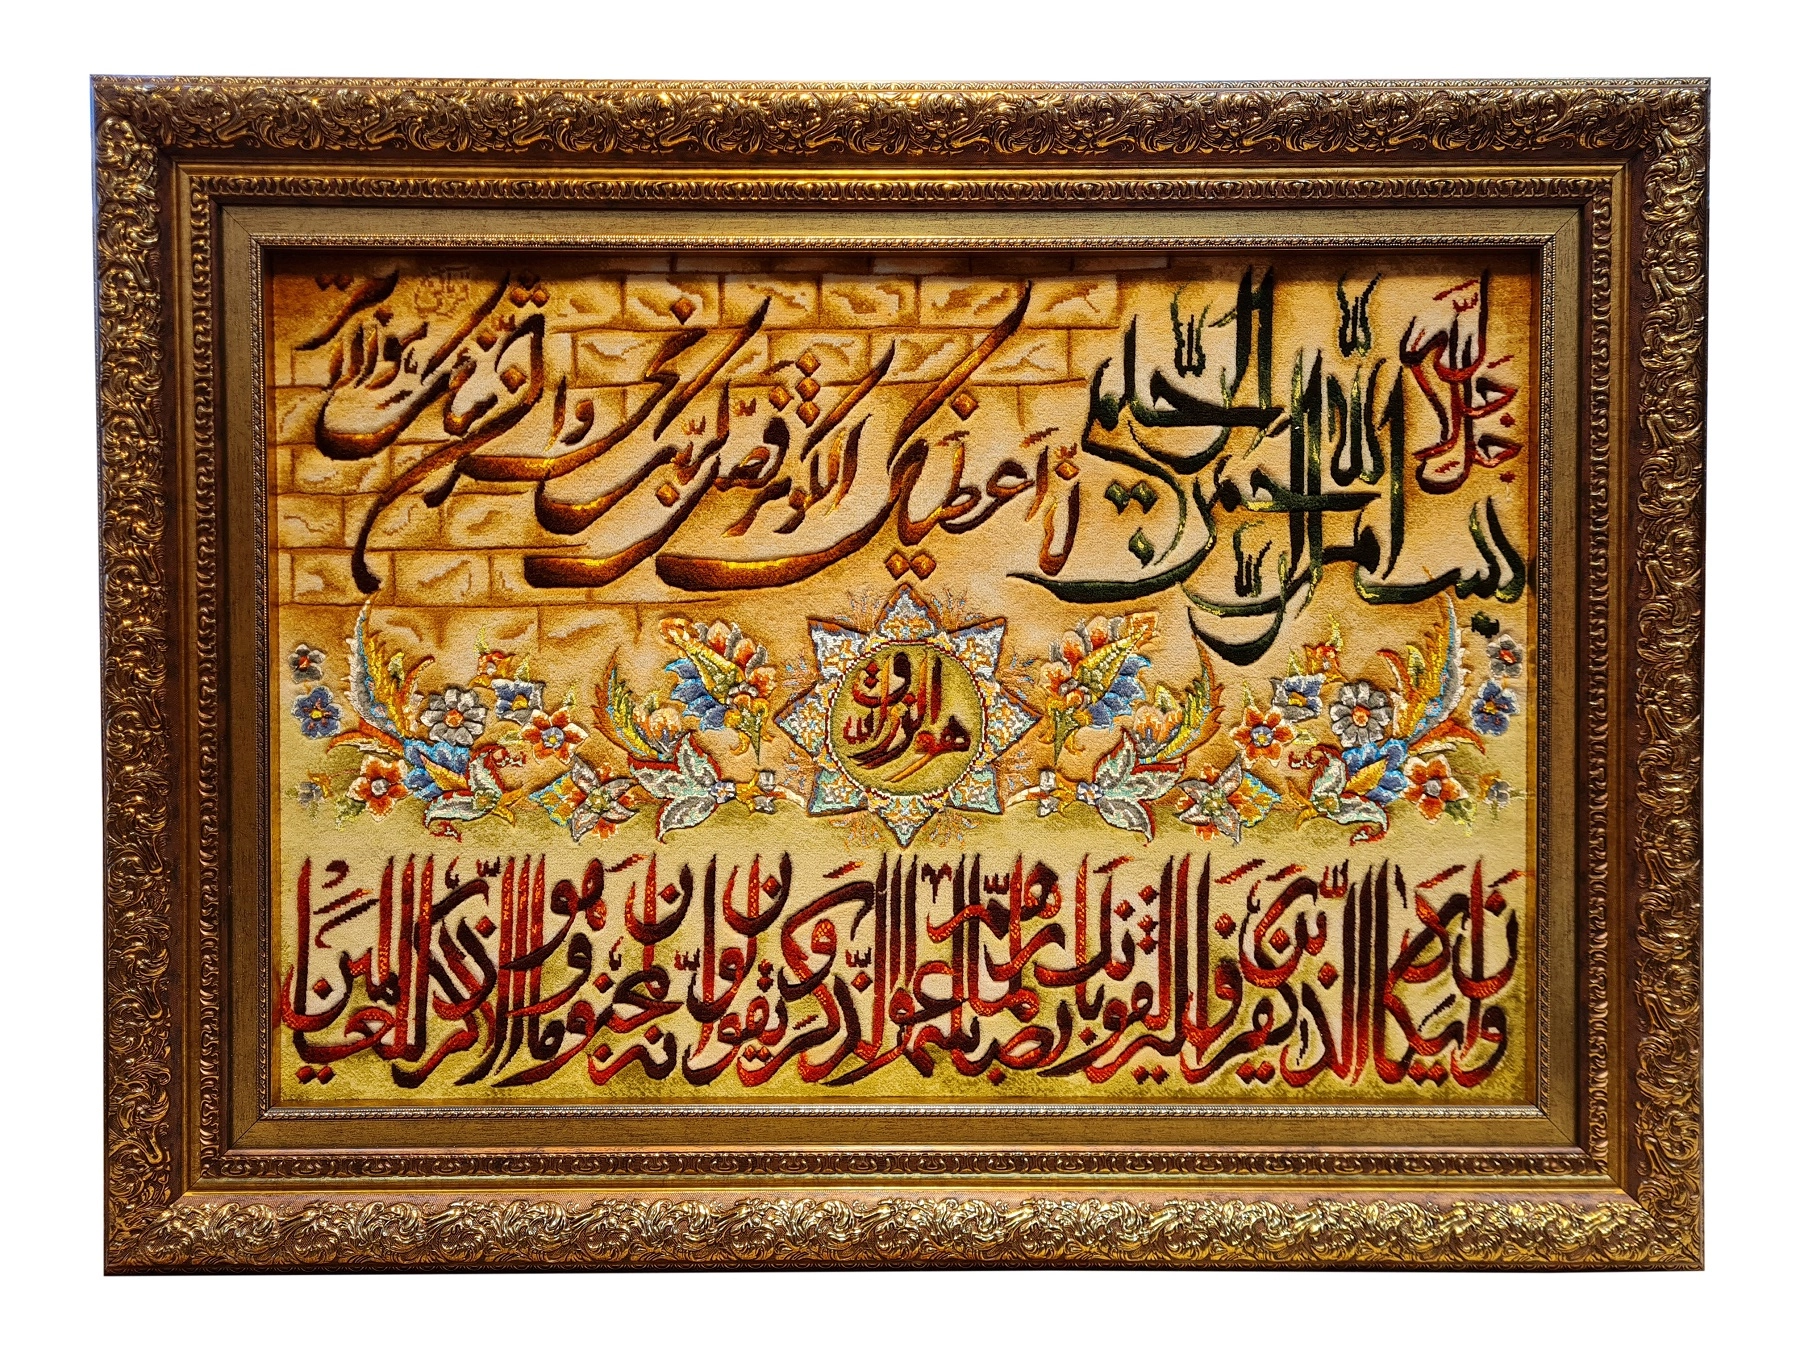 جل جلاله
بسم الله الرحمن الرحیم
إنا أعطیناک الکوثر فصل لربک وانحر إن شانئک هو الأبتر
هو الرزاق
الله
وإن یکاد الذین کفروا لیزلقونک بأبصارهم لما سمعوا الذکر ویقولون إنه لمجنون وما هو إلا ذکر للعالمین